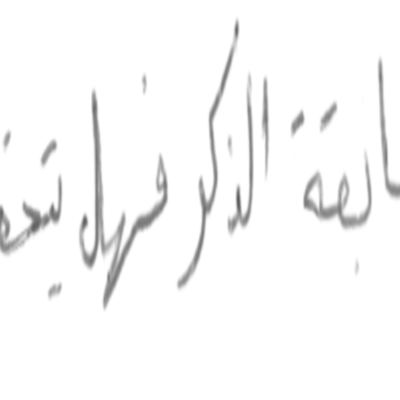 ابقة الذكر فهل يتحق